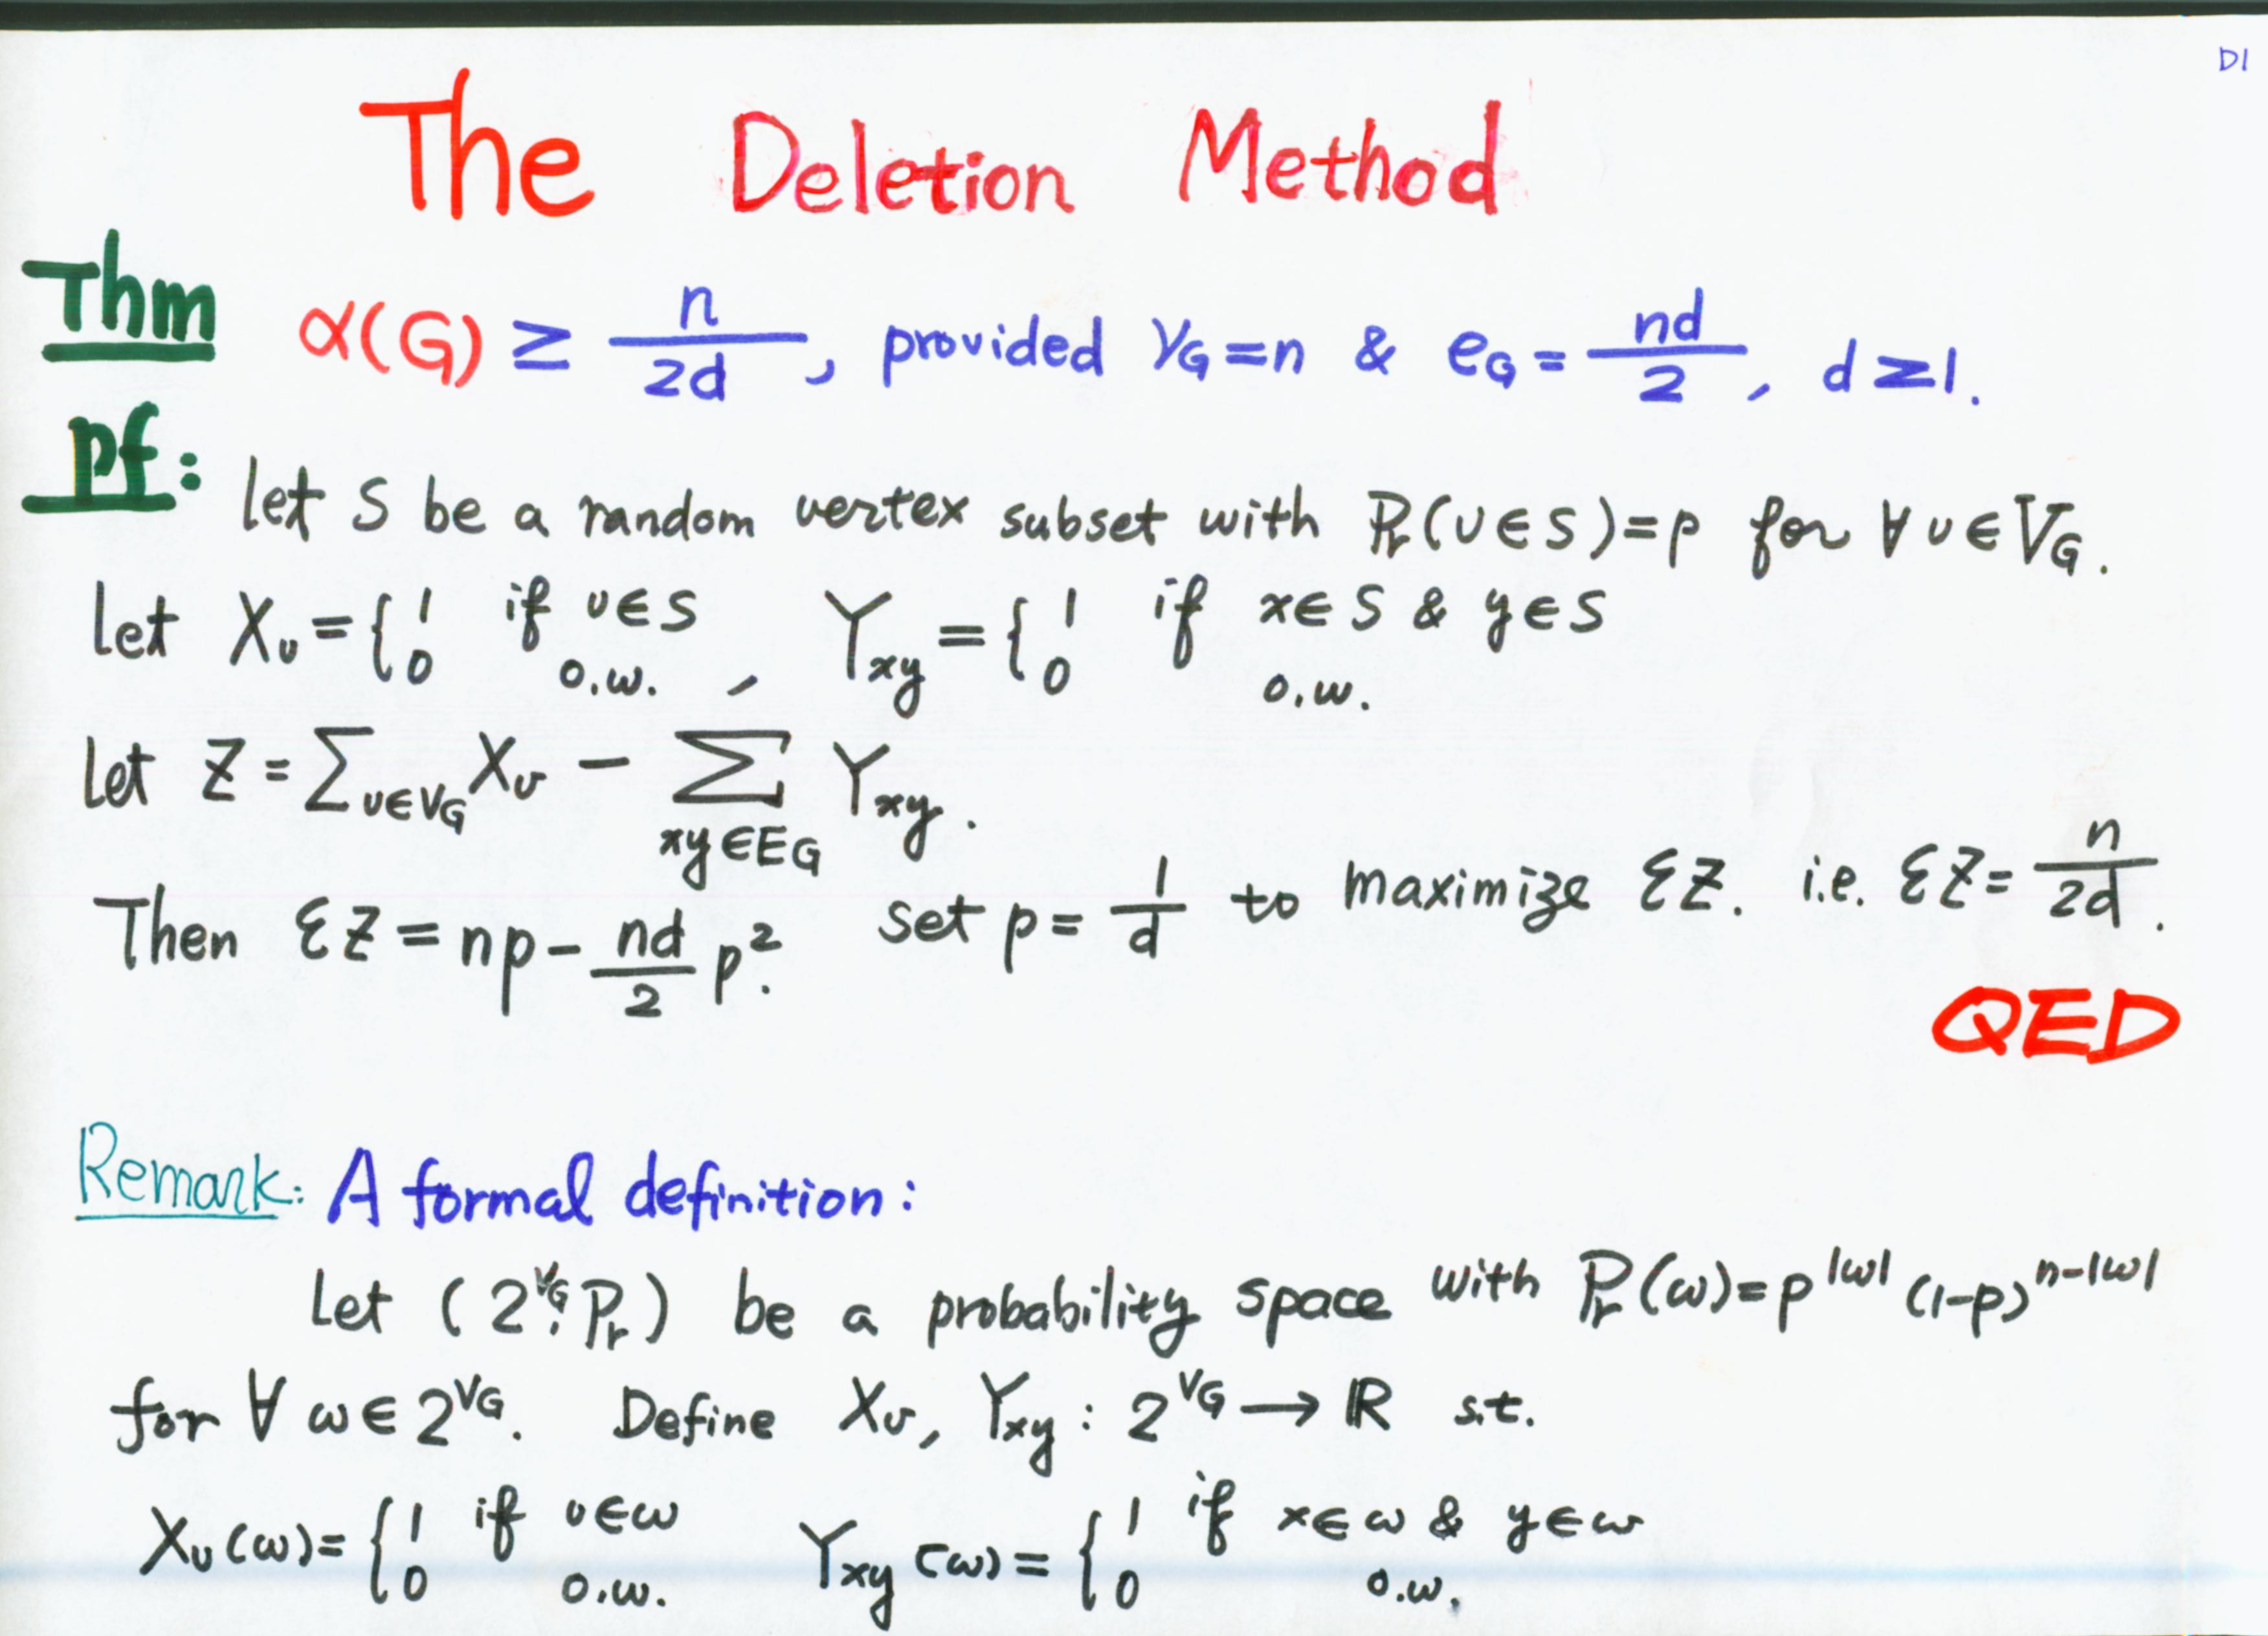 D1
The Deletion Method
Thm α(G) ≥ n/2d, provided V_G = n & e_G = nd/2, d ≥ 1.
pf: let S be a random vertex subset with Pr(υ∈S)=p for ∀ υ∈V_G.
let X_υ = { 1 if υ∈S 0 o.w. , Y_xy = { 1 if x∈S & y∈S 0 o.w.
let Z = ∑_{υ∈V_G} X_υ − ∑_{xy∈E_G} Y_xy.
Then ℰZ = np − nd/2 p². set p = 1/d to maximize ℰZ. i.e. ℰZ = n/2d.
QED
Remark: A formal definition:
Let (2^{V_G}, Pr) be a probability space with Pr(ω)=p^{|ω|}(1-p)^{n-|ω|}
for ∀ ω∈2^{V_G}. Define X_υ, Y_xy : 2^{V_G} → ℝ s.t.
X_υ(ω) = { 1 if υ∈ω 0 o.w. Y_xy(ω) = { 1 if x∈ω & y∈ω 0 o.w.